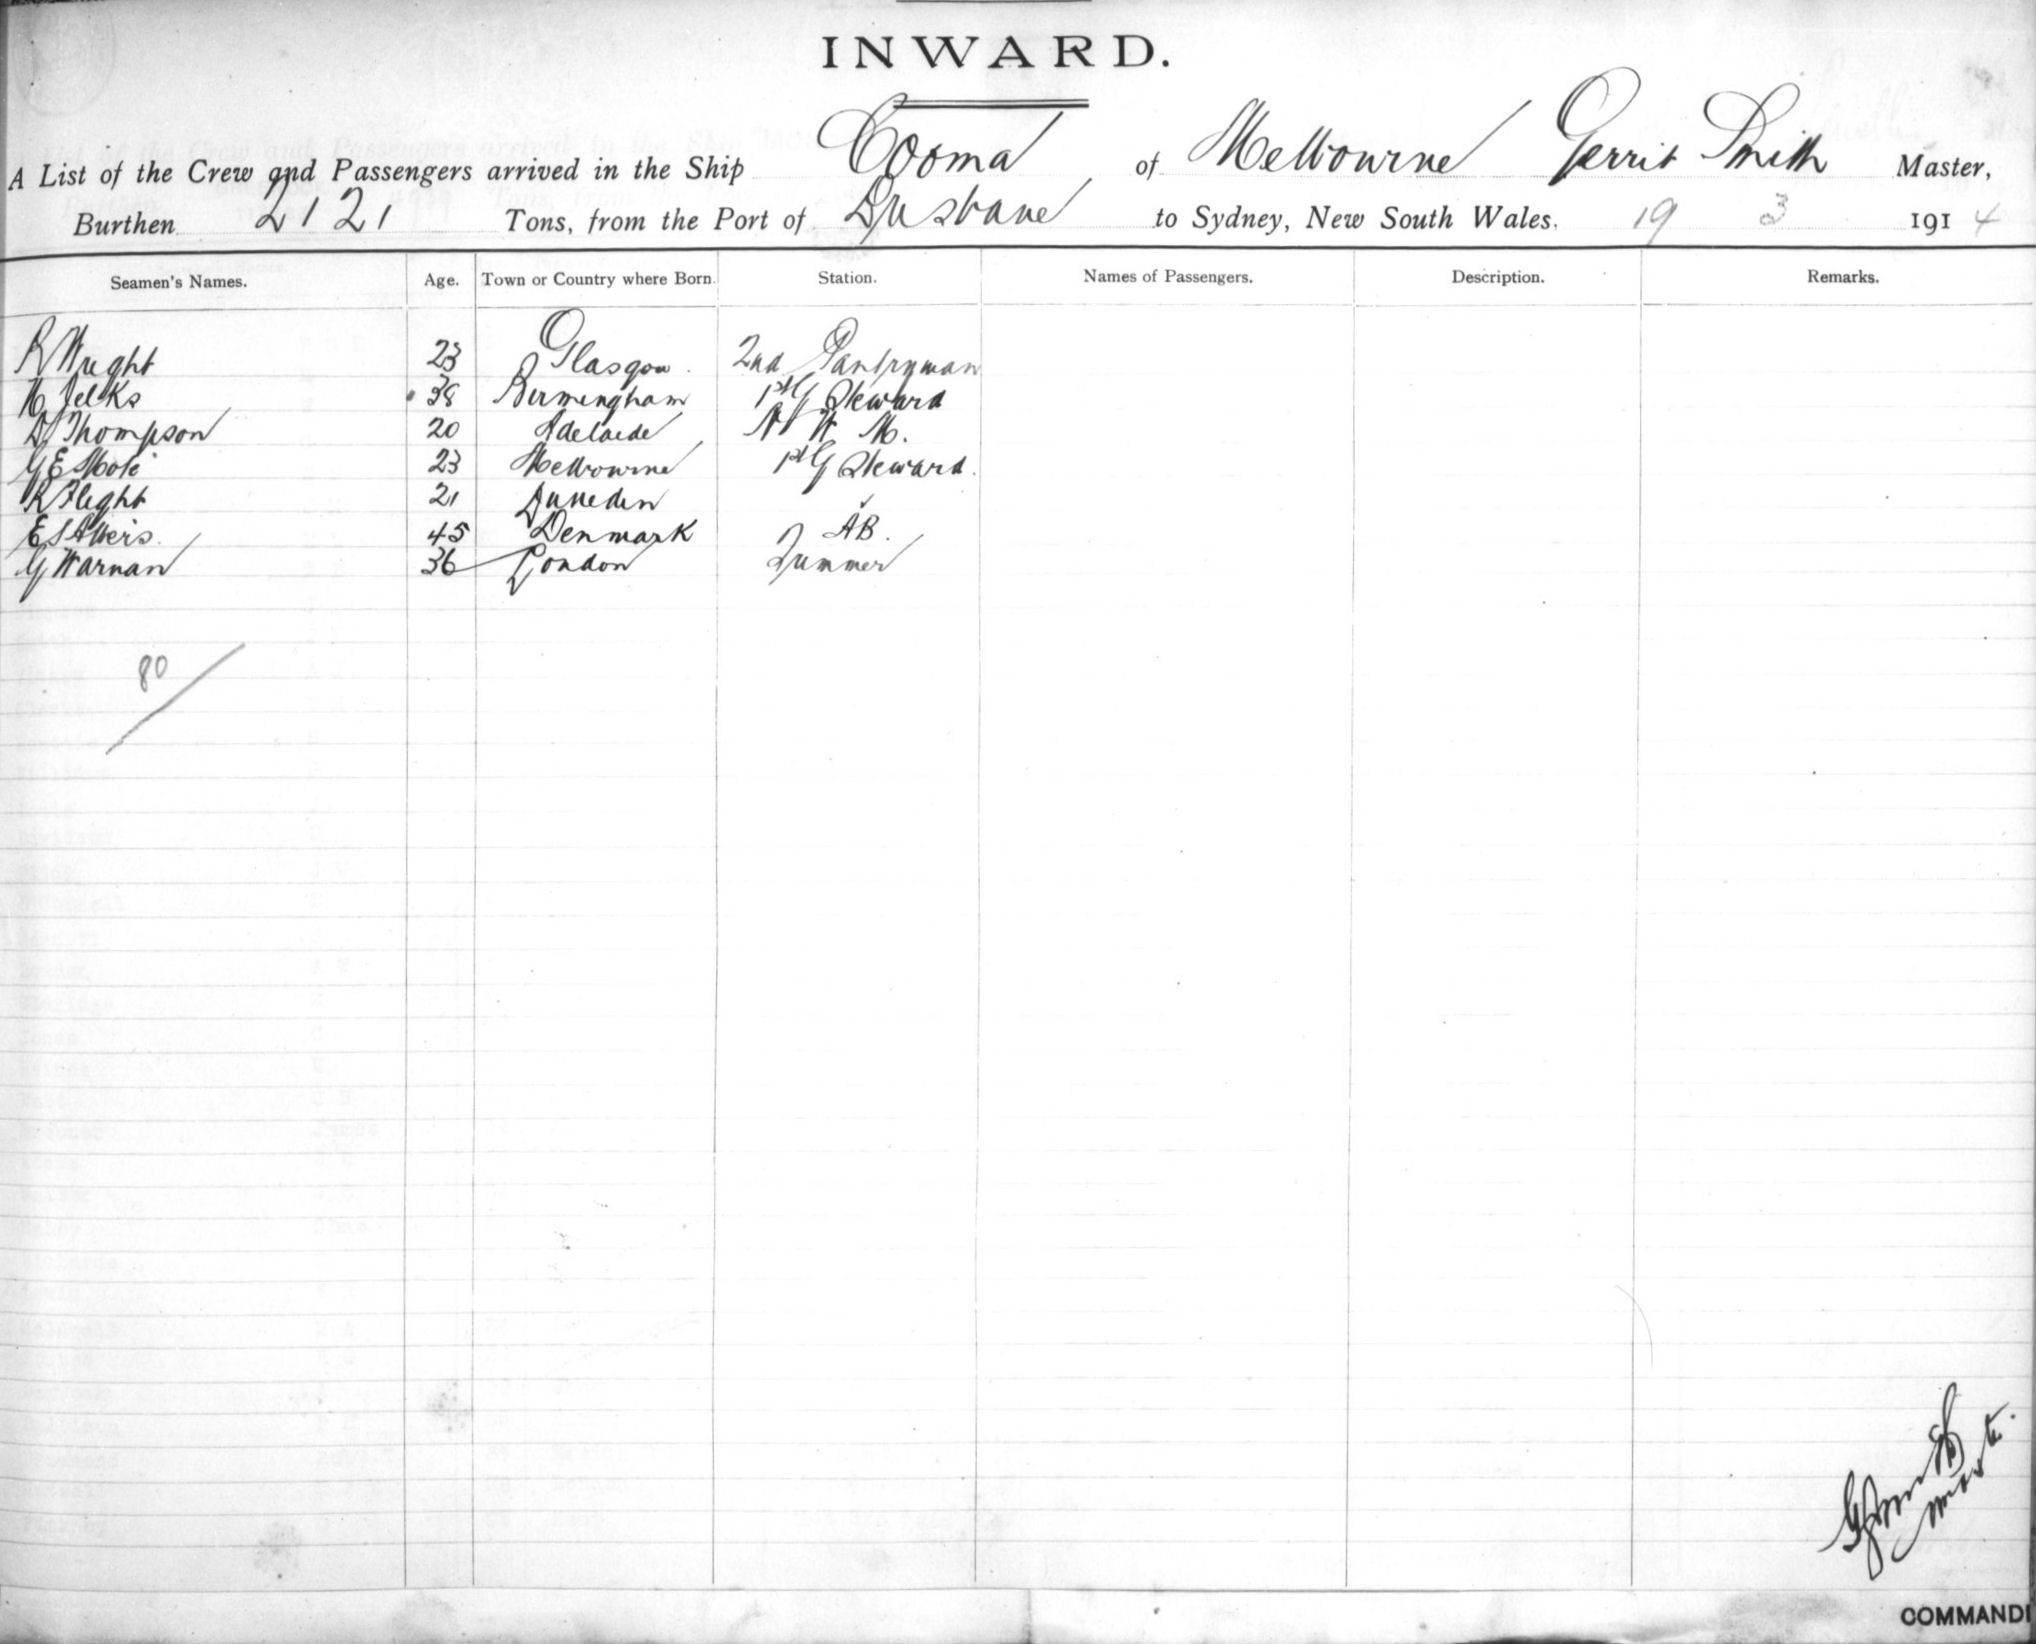 INWARD.
A List of the Crew and Passengers arrived in the Ship Cooma of Melbourne Gerrit Smith Master,
Burthen 2121 Tons, from the Port of Brisbane to Sydney, New South Wales. 19 3 1914
Seamen's Names. Age. Town or Country where Born. Station. Names of Passengers. Description. Remarks.
R Wright 23 Glasgow 2nd Pantryman
H Jelks 38 Birmingham 1st G Steward
D Thompson 20 Adelaide
G E Mole 23 Melbourne 1st G Steward.
R Flight 21 Dunedin
E S 45 Denmark AB.
G Warnan 36 London
80
G Smith
Master.
COMMANDE